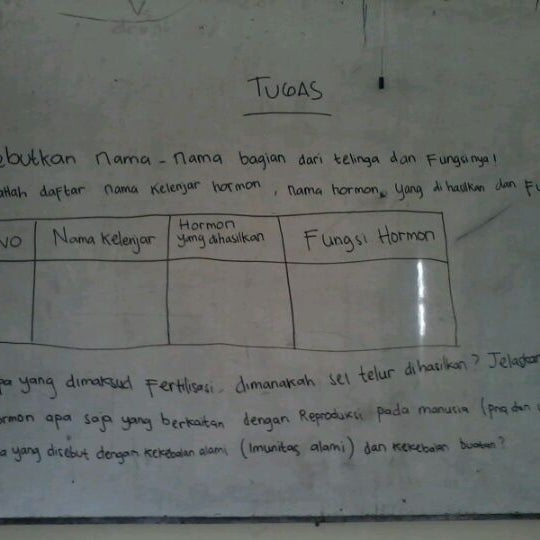 TUGAS
ebutkan nama-nama bagian dari telinga dan Fungsinya!
atlah daftar nama kelenjar hormon, nama hormon yang dihasilkan dan Fu
NO Nama Kelenjar Hormon yang dihasilkan Fungsi Hormon
pa yang dimaksud Fertilisasi. dimanakah sel telur dihasilkan? Jelaskan
ormon apa saja yang berkaitan dengan Reproduksi pada manusia (pria dan
a yang disebut dengan kekebalan alami (Imunitas alami) dan kekebalan buatan?